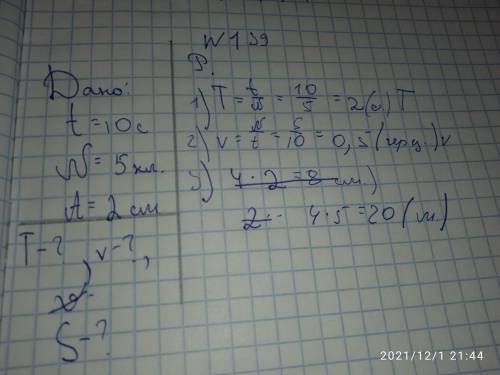 N 139
Дано:
t = 10 с
N = 5 кл.
A = 2 см
T - ? v - ?,
S - ?
Р.
1) T = t/N = 10/5 = 2(с.) T
2) v = N/t = 5/10 = 0,5 (герц.) v
3) 4 · 2 = 8 см.)
2 · 4 · 5 = 20 (м.)
2021/12/1 21:44